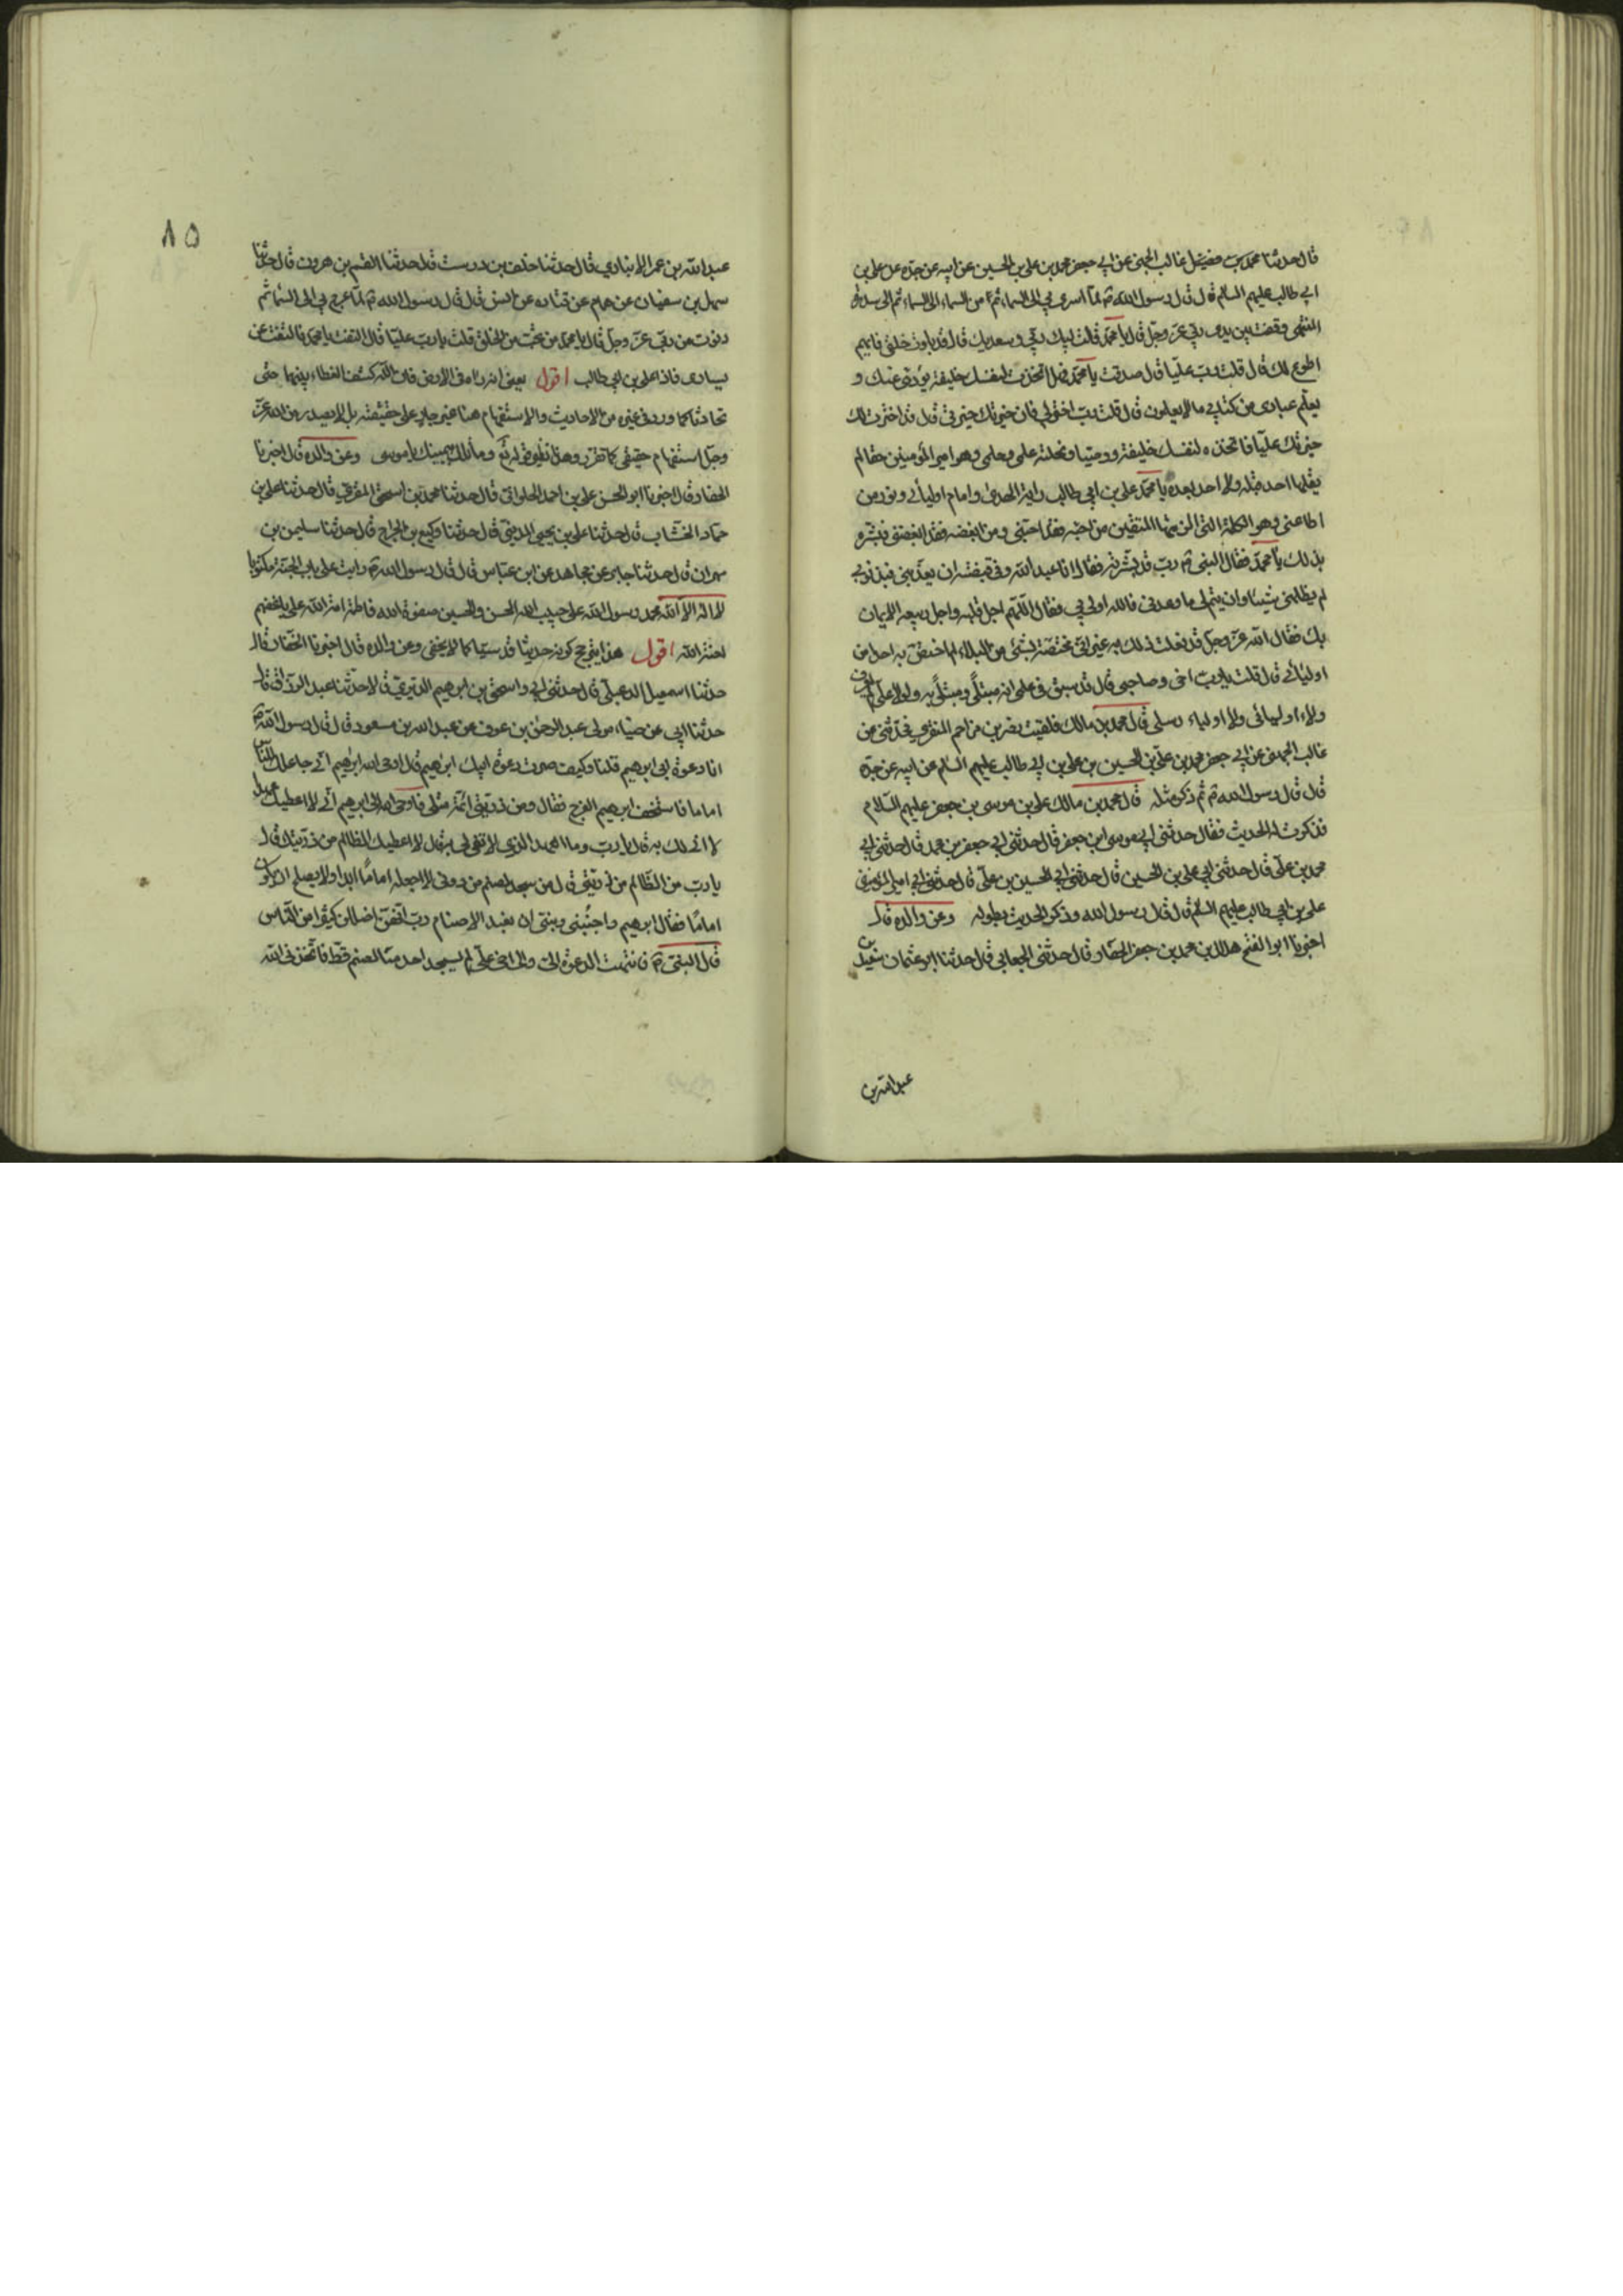 قال حدثنا محمد بن فضيل عن غالب الجهنى عن ابى جعفر محمد بن على بن الحسين عن ابيه عن جده عن على بن
ابى طالب عليهم السلم قال قال رسول الله ص لما اسرى بى الى السماء ثم من السماء الى السماء ثم الى سدرة
المنتهى وقفت بين يدى ربى عز وجل قال يا محمد قلت لبيك ربى وسعديك قال قد بلوت خلقى فايهم
اطوع لك قال قلت رب عليا قال صدقت يا محمد فهل اتخذت لنفسك خليفة يؤدى عنك و
يعلم عبادى من كتابى ما لا يعلمون قال قلت رب اختر لى فان خيرتك خيرتى قال قد اخترت لك
خيرتك عليا فاتخذه لنفسك خليفة ووصيا ونحلته علمى وحلمى وهو امير المؤمنين حقا لم
يقلها احد قبله ولا احد بعده يا محمد على بن ابى طالب راية الهدى وامام اوليائى ونور من
اطاعنى وهو الكلمة التى الزمتها المتقين من احبه فقد احبنى ومن ابغضه فقد ابغضنى فبشره
بذلك يا محمد فقال النبى ص رب قد بشرته فقال انا عبد الله وفى قبضته ان يعذبنى فبذنوبى
لم يظلمنى شيئا وان يتم لى ما وعدنى فالله اولى بى فقال اللهم اجل قلبه واجعل ربيعه الايمان
بك فقال الله عز وجل قد فعلت ذلك به غير انى مختصه بشئ من البلاء لم اختص به احدا من
اوليائى قال قلت يا رب اخى وصاحبى قال قد سبق فى علمى انه مبتلى ومبتلى به ولولا على لم يعرف
ولاء اوليائى ولا اولياء رسلى قال محمد بن مالك فلقيت نصر بن مزاحم المنقرى فحدثنى عن
غالب الجهنى عن ابى جعفر محمد بن على بن الحسين بن على بن ابى طالب عليهم السلم عن ابيه عن جده
قال قال رسول الله ص ثم ذكر مثله قال محمد بن مالك على بن موسى بن جعفر عليهم السلام
فذكرت له الحديث فقال حدثنى ابى موسى بن جعفر قال حدثنى ابى جعفر بن محمد قال حدثنى ابى
محمد بن على قال حدثنى ابى على بن الحسين قال حدثنى ابى الحسين بن على قال حدثنى ابى امير المؤمنين
على بن ابى طالب عليهم السلم قال قال رسول الله وذكر الحديث بطوله وعن والده قال
اخبرنا ابو الفتح هلال بن محمد بن جعفر الحفار قال حدثنى الجعابى قال حدثنا ابو عثمان سعيد بن
عبد الله بن
٨٥
عبد الله بن عمر الانبارى قال حدثنا خلف بن درست قال حدثنا القسم بن هرون قال حدثنا
سهل بن سفيان عن همام عن قتاده عن انس قال قال رسول الله ص لما عرج بى الى السماء ثم
دنوت من ربى عز وجل قال يا محمد من تحب من الخلق قلت يا رب عليا قال التفت يا محمد فالتفت عن
يسارى فاذا على بن ابى طالب اقول يعنى انه رءاه فى الارض فان الله كشف الغطاء بينهما حتى
تحادثا كما ورد فى غيره من الاحاديث والاستفهام هنا غير جار على حقيقته بل لا يصدر من الله عز
وجل استفهام حقيقى كما تقرر وهذا نظير قوله تع وما تلك بيمينك يا موسى وعن والده قال اخبرنا
الحفار قال اخبرنا ابو الحسن على بن احمد الحلوانى قال حدثنا محمد بن اسحق المقرى قال حدثنا على بن
حماد الخشاب قال حدثنا على بن يحيى المدينى قال حدثنا وكيع بن الجراح قال حدثنا سليمن بن
مهران قال حدثنا جابر عن مجاهد عن ابن عباس قال قال رسول الله ص رايت على باب الجنة مكتوبا
لا اله الا الله محمد رسول الله على حبيب الله الحسن والحسين صفوة الله فاطمة امة الله على باغضهم
لعنة الله اقول هذا يخرج كونه حديثا قدسيا كما لا يخفى وعن والده قال اخبرنا الحفار قال
حدثنا اسمعيل الدعبلى قال حدثنى ابى واسحق بن ابرهيم الدبرى قالا حدثنا عبد الرزاق قال
حدثنا ابى عن ميناء مولى عبد الرحمن بن عوف عن عبد الله بن مسعود قال قال رسول الله ص
انا دعوة ابى ابرهيم قلنا وكيف صرت دعوة ابيك ابرهيم قال اوحى الله ابرهيم انى جاعلك للناس
اماما فاستخف ابرهيم الفرح فقال ومن ذريتى ائمة مثلى فاوحى الله الى ابرهيم انى لا اعطيك عهدا
لا افى لك به قال يا رب وما العهد الذى لا تفى لى به قال لا اعطيك لظالم من ذريتك قال
يا رب من الظالم من ذريتى قال من سجد لصنم من دونى لا اجعله اماما ابدا ولا يصلح ان يكون
اماما فقال ابرهيم واجنبنى وبنى ان نعبد الاصنام رب انهن اضللن كثيرا من الناس
قال النبى ص فانتهت الدعوة الى والى اخى على لم يسجد احد منا لصنم قط فاتخذنى الله